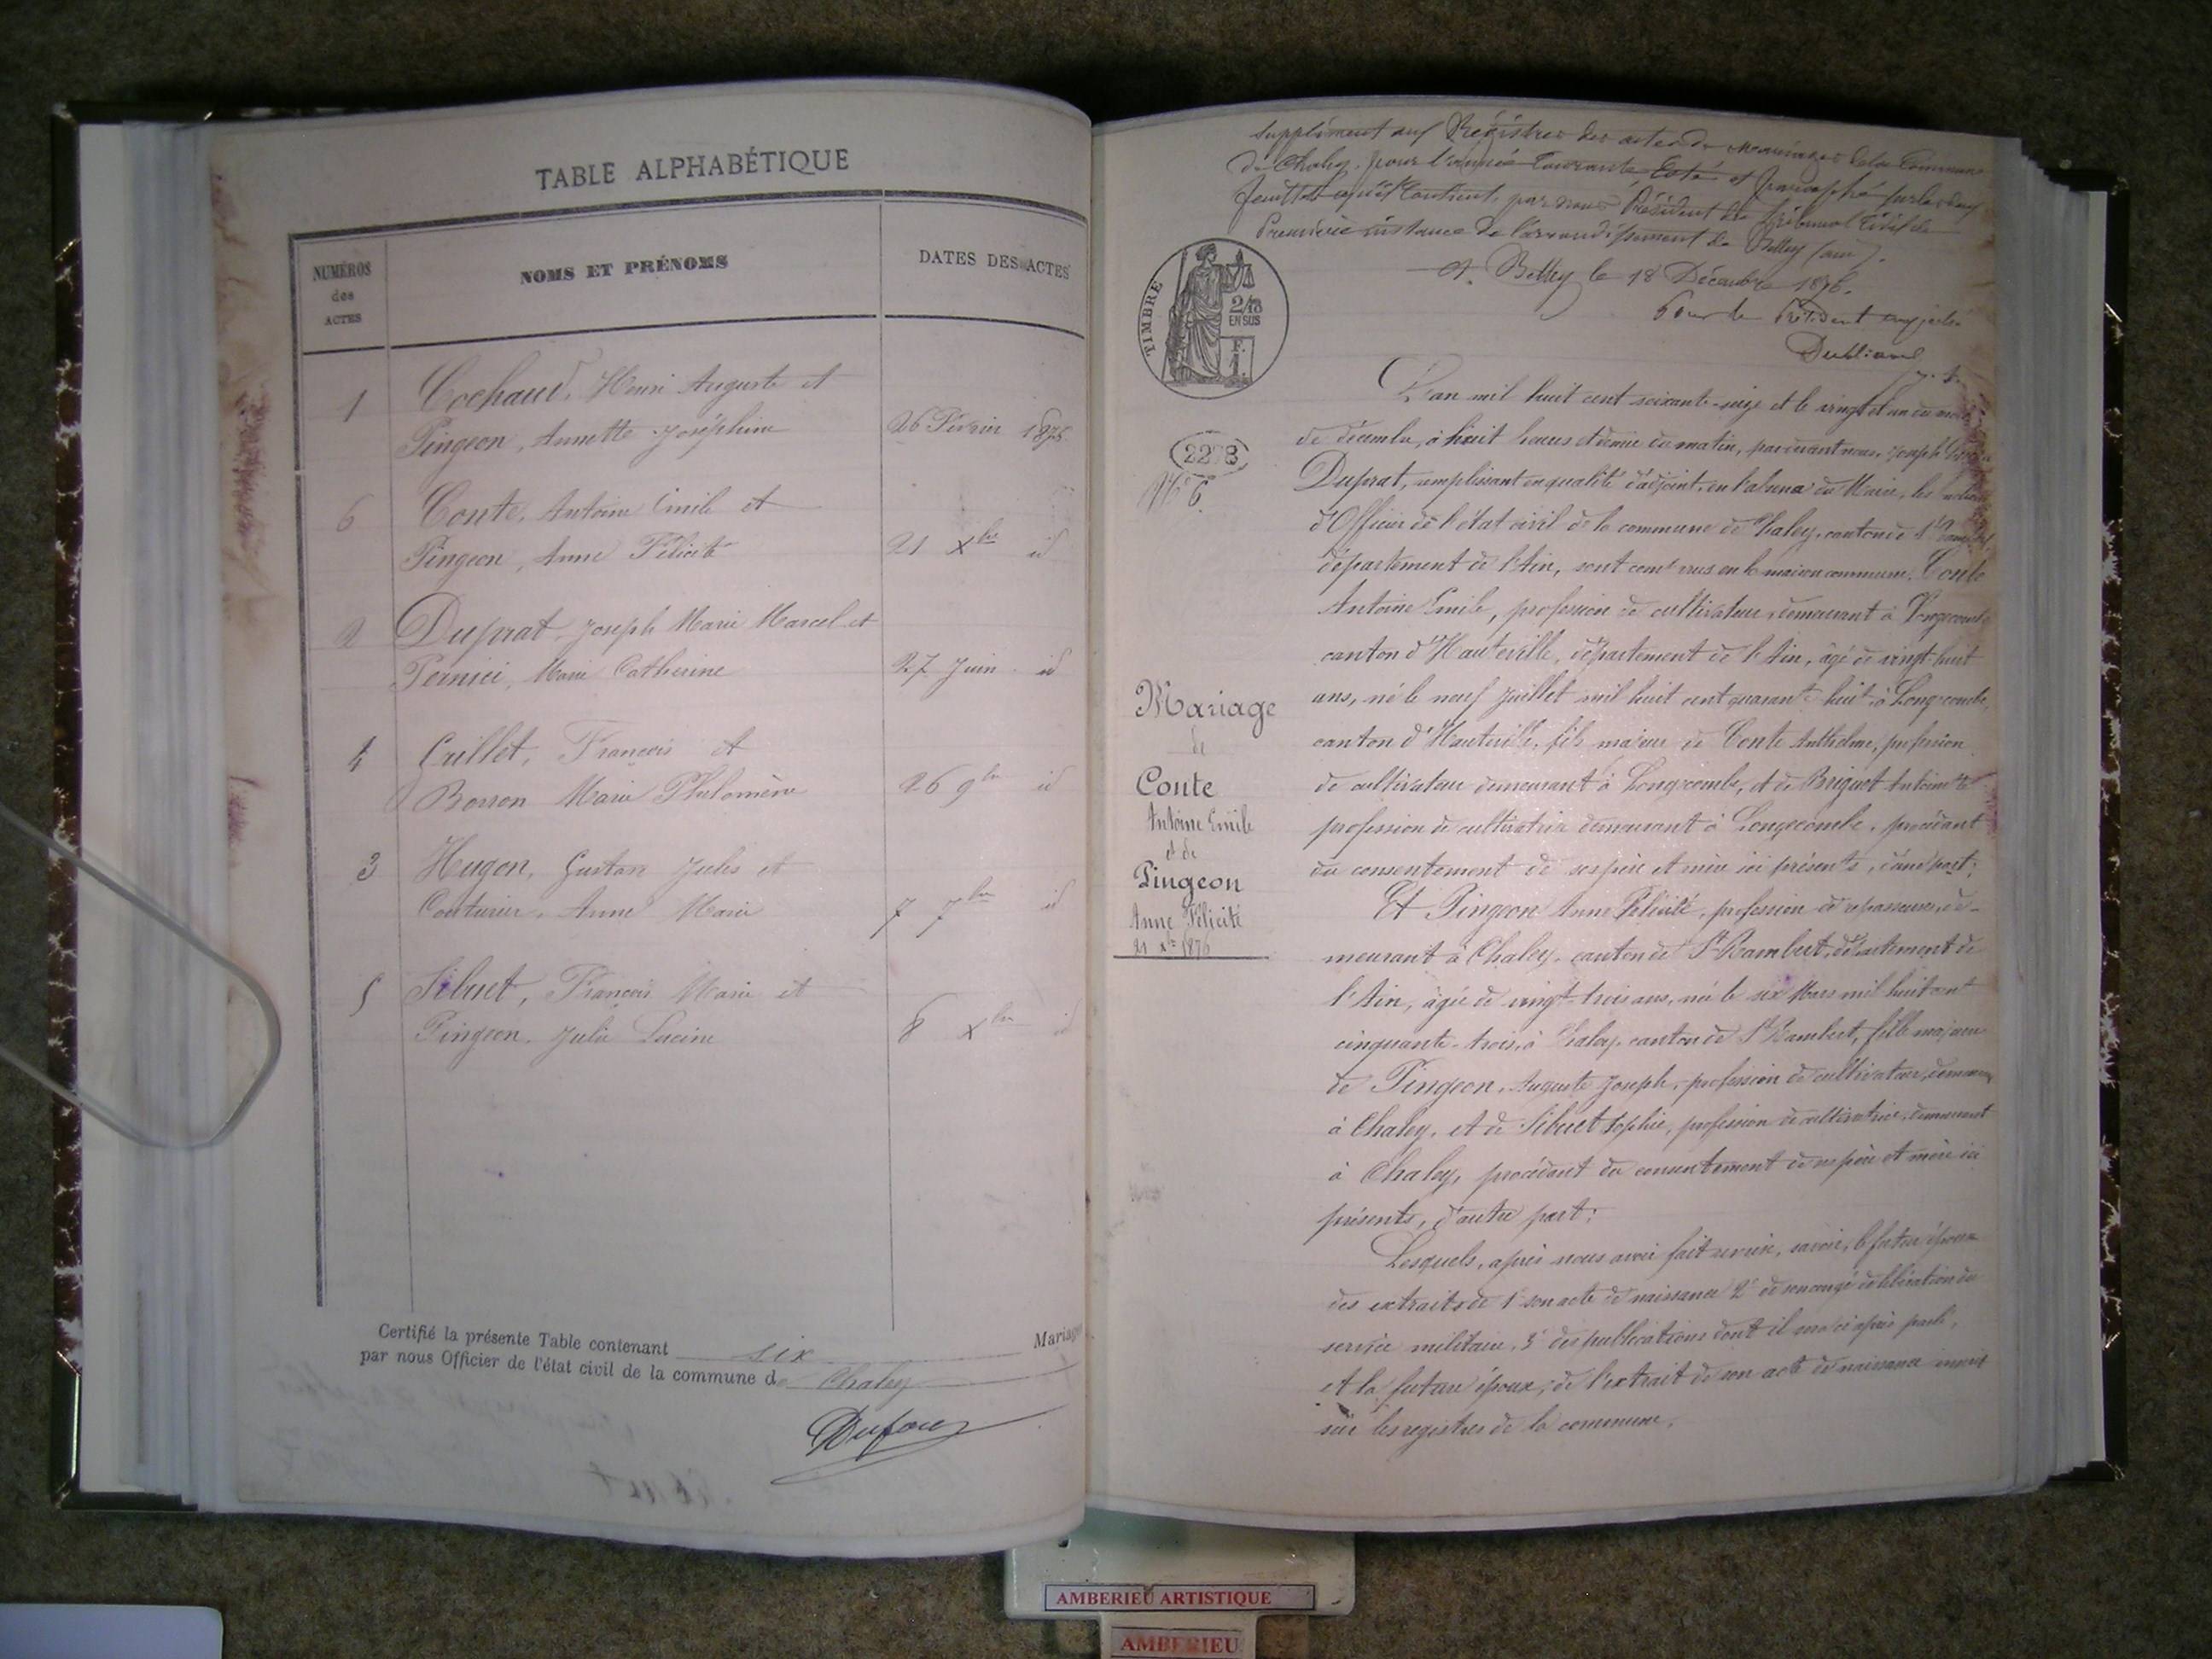 TABLE ALPHABÉTIQUE
NUMÉROS
des
ACTES
NOMS ET PRÉNOMS
DATES DES ACTES
1
Cochaud, Henri Auguste et
Pingeon, Annette Joséphine
26 Février 1876
6
Conte, Antoine Emile et
Pingeon, Anne Félicité
21 Xbre id
2
Duprat, Joseph Marie Marcel et
Pernici, Marie Catherine
27 Juin id
4
Grillet, François et
Borron Marie Philomène
26 9bre id
3
Hugon, Gustave Jules et
Couturier, Anne Marie
7 7bre id
5
Sibuet, François Marie et
Pingeon, Julie Lucine
8 Xbre id
Certifié la présente Table contenant six Mariages
par nous Officier de l'état civil de la commune de Chaley
Dufour
Supplément aux Régistres des actes de mariages de la Commune
de Chaley, pour l'année Courante Coté et paraphé par les deux
feuillets qu'il Contient, par nous Président du tribunal Civil de
Première instance de l'arrondissement de Belley (ain).
A Belley le 18 Décembre 1876.
Pour le Président empêché
TIMBRE
2/10
EN SUS
F.
1.
2278
No 6
Mariage
de
Conte
Antoine Emile
et de
Pingeon
Anne Félicité
21 Xbre 1876
L'an mil huit cent soixante-seize et le vingt et un du mois
de décembre, à huit heures et demie du matin, par devant nous, Joseph
Duprat, remplissant en qualité d'adjoint, en l'absence du Maire, les fonctions
d'Officier de l'état civil de la commune de Chaley, canton de St Rambert,
département de l'Ain, sont comparus en la maison commune, Conte
Antoine Emile, profession de cultivateur, demeurant à Longecombe
canton d'Hauteville, département de l'Ain, âgé de vingt-huit
ans, né le neuf Juillet mil huit cent quarante-huit à Longecombe,
canton d'Hauteville, fils majeur de Conte Anthelme, profession
de cultivateur demeurant à Longecombe, et de Briguot Antoinette
profession de cultivatrice demeurant à Longecombe, procédant
du consentement de ses père et mère ici présents, d'une part;
Et Pingeon Anne Félicité, profession de repasseuse, de-
meurant à Chaley, canton de St Rambert, département de
l'Ain, âgée de vingt-trois ans, née le six Mars mil huit cent
cinquante-trois, à Chaley, canton de St Rambert, fille majeure
de Pingeon, Auguste Joseph, profession de cultivateur, demeurant
à Chaley, et de Sibuet Sophie, profession de cultivatrice, demeurant
à Chaley, procédant du consentement de ses père et mère ici
présents, d'autre part:
Lesquels, après nous avoir fait remise, savoir, le futur époux
des extraits de 1° son acte de naissance 2° de son congé de libération du
service militaire, 3° des publications dont il sera ci après parlé,
et la future épouse, de l'extrait de son acte de naissance inscrit
sur les registres de la commune.
AMBERIEU ARTISTIQUE
AMBERIEU